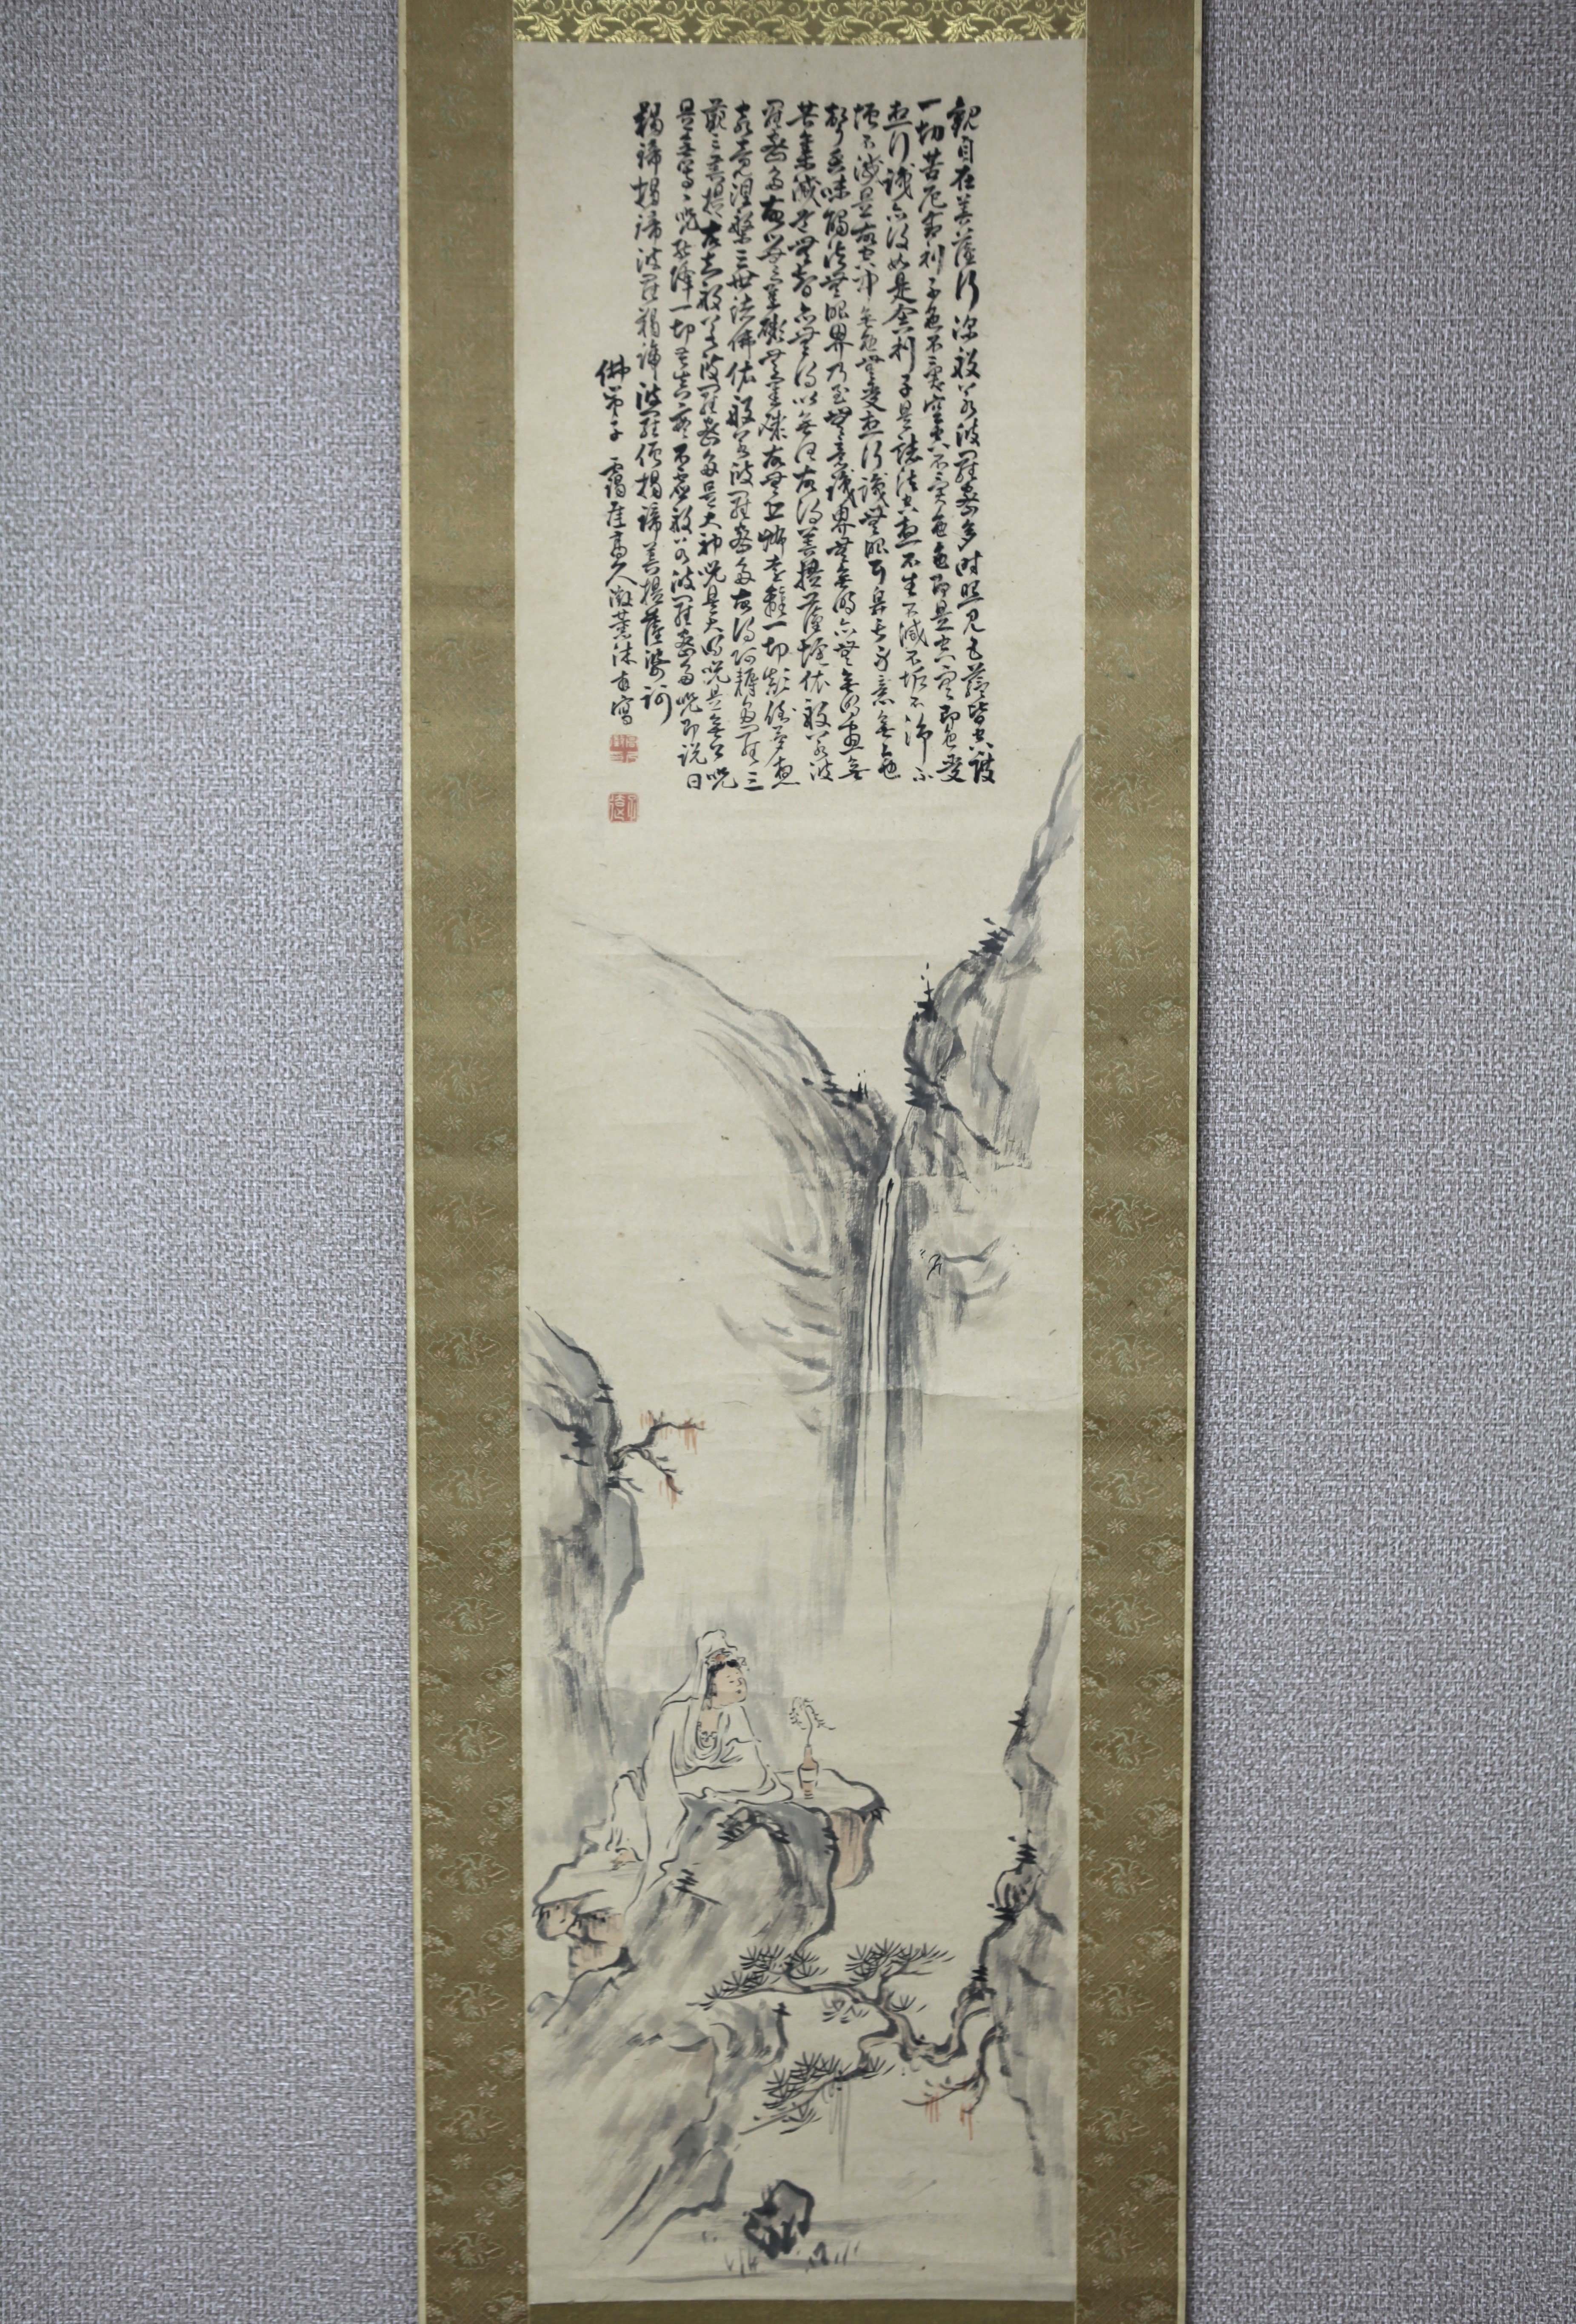 観自在菩薩行深般若波羅蜜多時照見五蘊皆空度
一切苦厄舎利子色不異空空不異色色即是空空即是色受
想行識亦復如是舎利子是諸法空想不生不滅不垢不浄不
増不減是故空中無色無受想行識無眼耳鼻舌身意無色
声香味触法無眼界乃至無意識界無無明亦無無明尽無
苦集滅道無智亦無得以無所得故菩提薩埵依般若波
羅蜜多故心無罣礙無罣礙故無有恐怖遠離一切顛倒夢想
究竟涅槃三世諸佛依般若波羅蜜多故得阿耨多羅三
藐三菩提故知般若波羅蜜多是大神呪是大明呪是無上呪
是無等々呪能除一切苦真実不虚故般若波羅蜜多呪即説曰
羯諦揭諦波羅羯諦波羅僧揭諦菩提薩婆訶
佛弟子 靄厓髙人激薫沐書寫